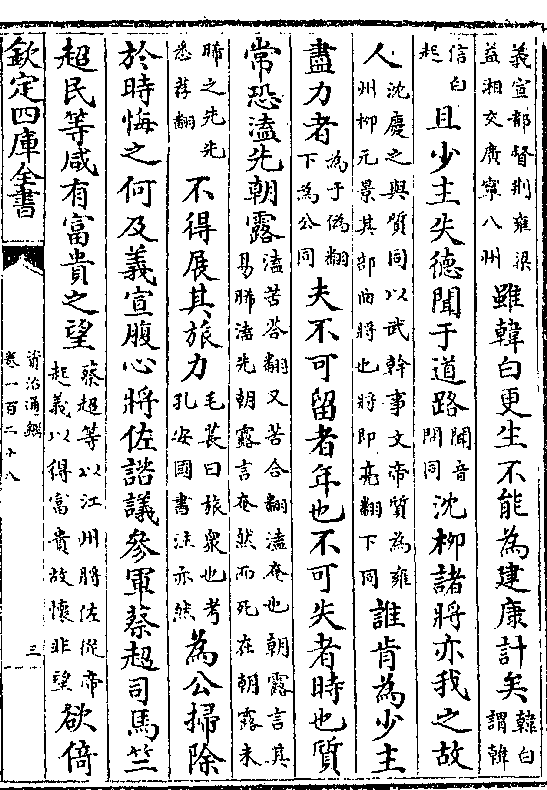 義宣都督荆雍梁益湘交廣寧八州雖韓白更生不能為建康計矣韓白謂韓
信白起且少主失德聞于道路聞音問同沈柳諸將亦我之故
人沈慶之與質同以武幹事文帝質為雍州柳元景其部曲將也將即亮翻下同誰肯為少主
盡力者為于偽翻下為公同夫不可留者年也不可失者時也質
常恐溘先朝露溘苦荅翻又苦合翻溘奄也朝露言其易晞溘先朝露言奄然而死在朝露未
晞之先先悉荐翻不得展其旅力毛萇曰旅衆也考孔安國書注亦然為公掃除
於時悔之何及義宣腹心將佐諮議參軍蔡超司馬竺
超民等咸有富貴之望蔡超等以江州將佐從帝起義以得富貴故懷非望欲倚
欽定四庫全書
資治通鑑
卷一百二十八
三